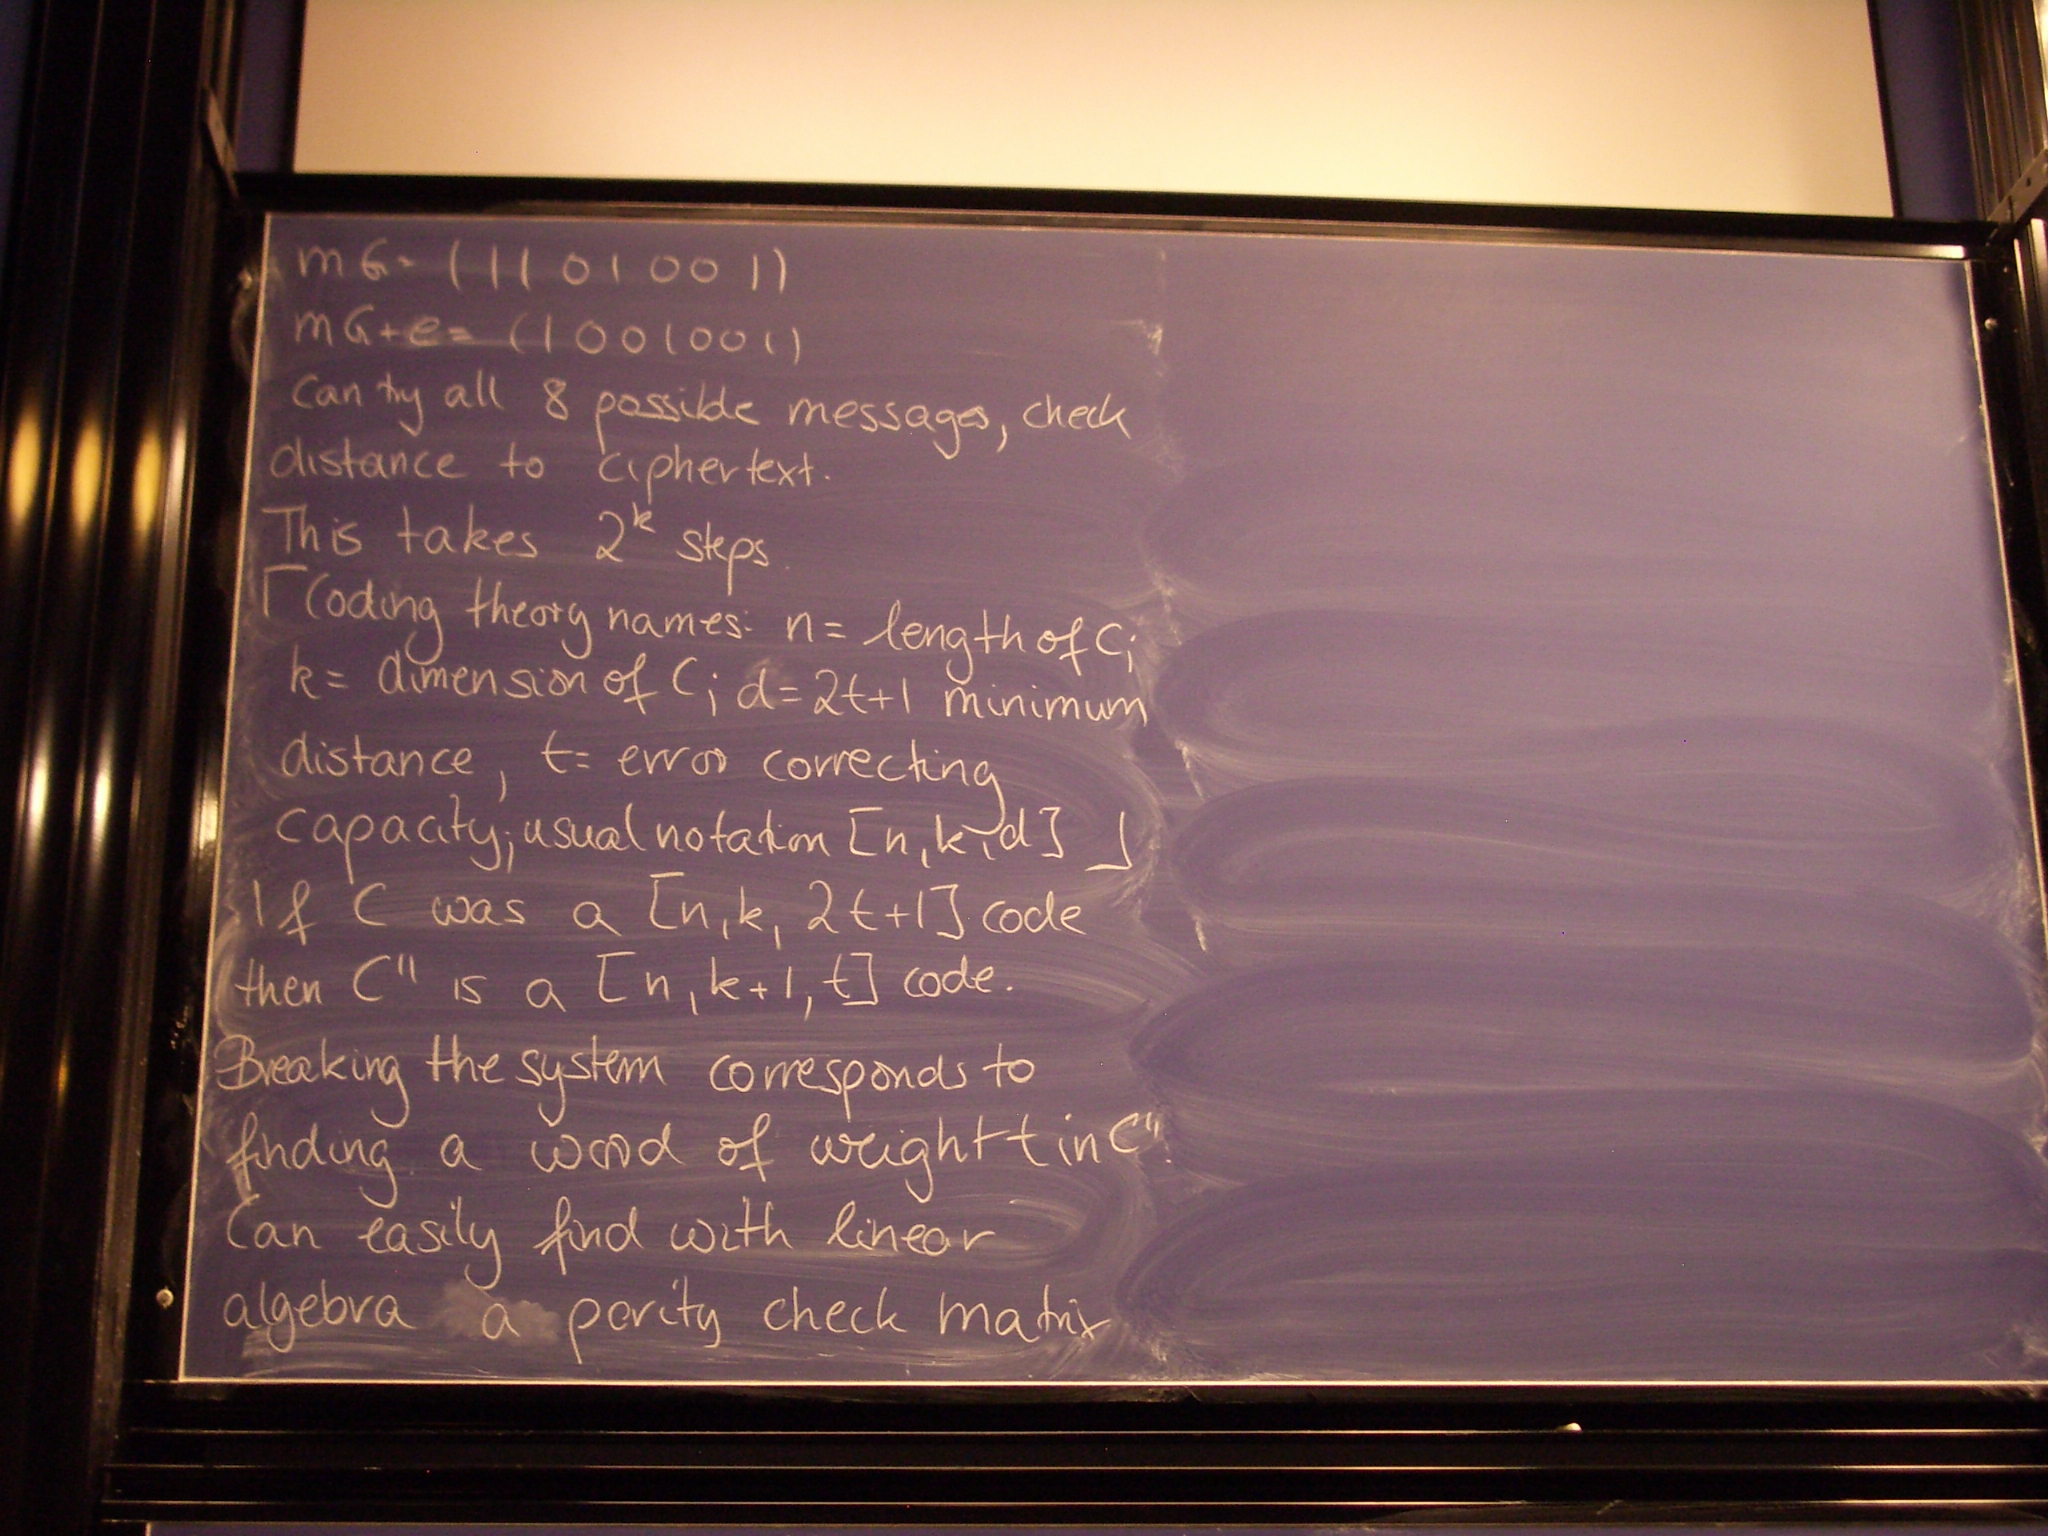 mG= (1101001)
mG+e= (1001001)
Can try all 8 possible messages, check
distance to ciphertext.
This takes 2^k steps.
⌈Coding theory names: n= length of C;
k= dimension of C; d=2t+1 minimum
distance, t= error correcting
capacity; usual notation [n,k,d] ⌋
If C was a [n,k, 2t+1] code
then C" is a [n,k+1,t] code.
Breaking the system corresponds to
finding a word of weight t in C".
Can easily find with linear
algebra a parity check matrix